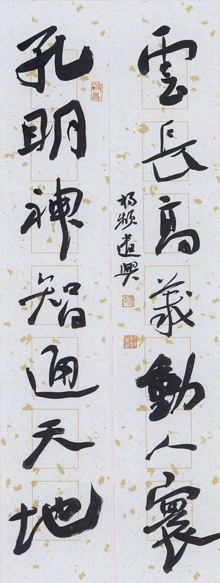 雲長高義動人寰
孔明神智通天地